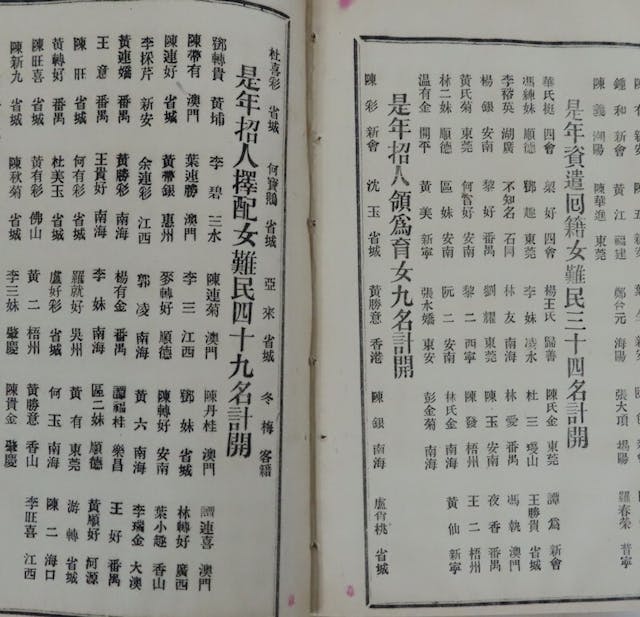 鍾 和 新會 黃 江 福建 鄭合元 海陽 張大頂 揭陽 羅春榮 普寧
陳 義 潮陽 陳華進 東莞
是年資遣回籍女難民三十四名計開
華氏娗 四會 梁 好 四會 楊王氏 歸善 陳氏金 東莞 譚 為 新會
馮練妹 順德 鄧 趣 順德 李 妹 凌水 杜 三 瓊山 王勝貴 省城
李 英 湖廣 不知名 石岡 林 友 南海 林 愛 番禺 馮 執 澳門
楊 銀 安南 黎 好 番禺 劉 耀 東莞 陳 玉 安南 夜 香 番禺
黃氏菊 東莞 何智好 安南 黎 二 西寧 陳 發 梧州 王 二 梧州
林二妹 順德 區 妹 安南 阮 二 安南 林氏金 南海 黃 仙 新寧
溫有金 開平 黃 美 新寧 張水嬌 東安 彭金菊 南海
是年招人領為育女九名計開
陳 彩 新會 沈 玉 省城 黃勝意 香港 陳 銀 南海 盧胥桃 省城
杜喜彩 省城 何寶鵝 省城 亞 來 省城 冬 梅 客籍
是年招人擇配女難民四十九名計開
鄧轉貴 黃埔 李 碧 三水 陳連菊 澳門 陳丹桂 澳門 譚連喜 澳門
陳帶有 澳門 葉連勝 澳門 李 三 江西 鄧 妹 省城 林轉好 廣西
陳連好 省城 黃帶銀 惠州 麥轉好 順德 陳轉好 安南 葉小趣 香山
李採芹 新安 余連彩 江西 郭 凌 南海 黃 六 南海 李瑞金 大澳
黃連嬌 番禺 黃勝彩 南海 楊有金 番禺 譚福桂 樂昌 王 好 番禺
王 意 番禺 王貴好 南海 李 妹 南海 區二妹 順德 黃順好 河源
陳 旺 省城 何有彩 省城 羅就好 吳州 黃 有 東莞 游 轉 省城
黃轉好 番禺 杜美玉 省城 盧好彩 省城 何 玉 南海 陳 二 海口
陳旺喜 省城 黃有彩 佛山 黃 二 梧州 黃勝意 香山 李旺喜 江西
陳新九 省城 陳秋菊 省城 李三妹 肇慶 陳貴金 肇慶